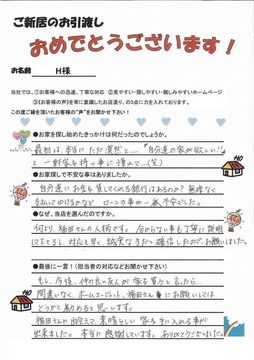 ご新居のお引渡し
おめでとうございます！
お名前 H様
当社では、①お客様への迅速、丁寧な対応 ②見やすい・探しやすい・親しみやすいホームページ
③《お客様の声》を常に意識したお店造り、の3点に力を入れております。
この度ご縁を頂いたお客様の“声”をお聞かせ下さい！
●お家を探し始めたきっかけは何だったのでしょうか。
最初は、本当にただ漠然と…“自分達の家が欲しい!!”
と一軒家を持つ事に憧れて…(笑)
●お家探しで不安な事はありましたか。
自分達にお金を貸してくれる銀行はあるのか？無理なく
支払って行けるかなど ローンの事が一番不安でした。
●なぜ、当店を選んだのですか。
何より福田さんの人柄です。分からない事も丁寧に説明
して下さり、対応も早く誠実な方だと確信したので、お願いしました。
●最後に一言！（担当者の対応などお聞かせ下さい）
もし、今後、仲の良い友人が家を買うと言ったら…
間違いなく、ホームエージェント、福田さんにお願いしては
どうかと勧めると思います。
福田さんに出会えて、素晴らしい家を手に入れる事が
出来ました。本当に感謝しています。ありがとうございました。